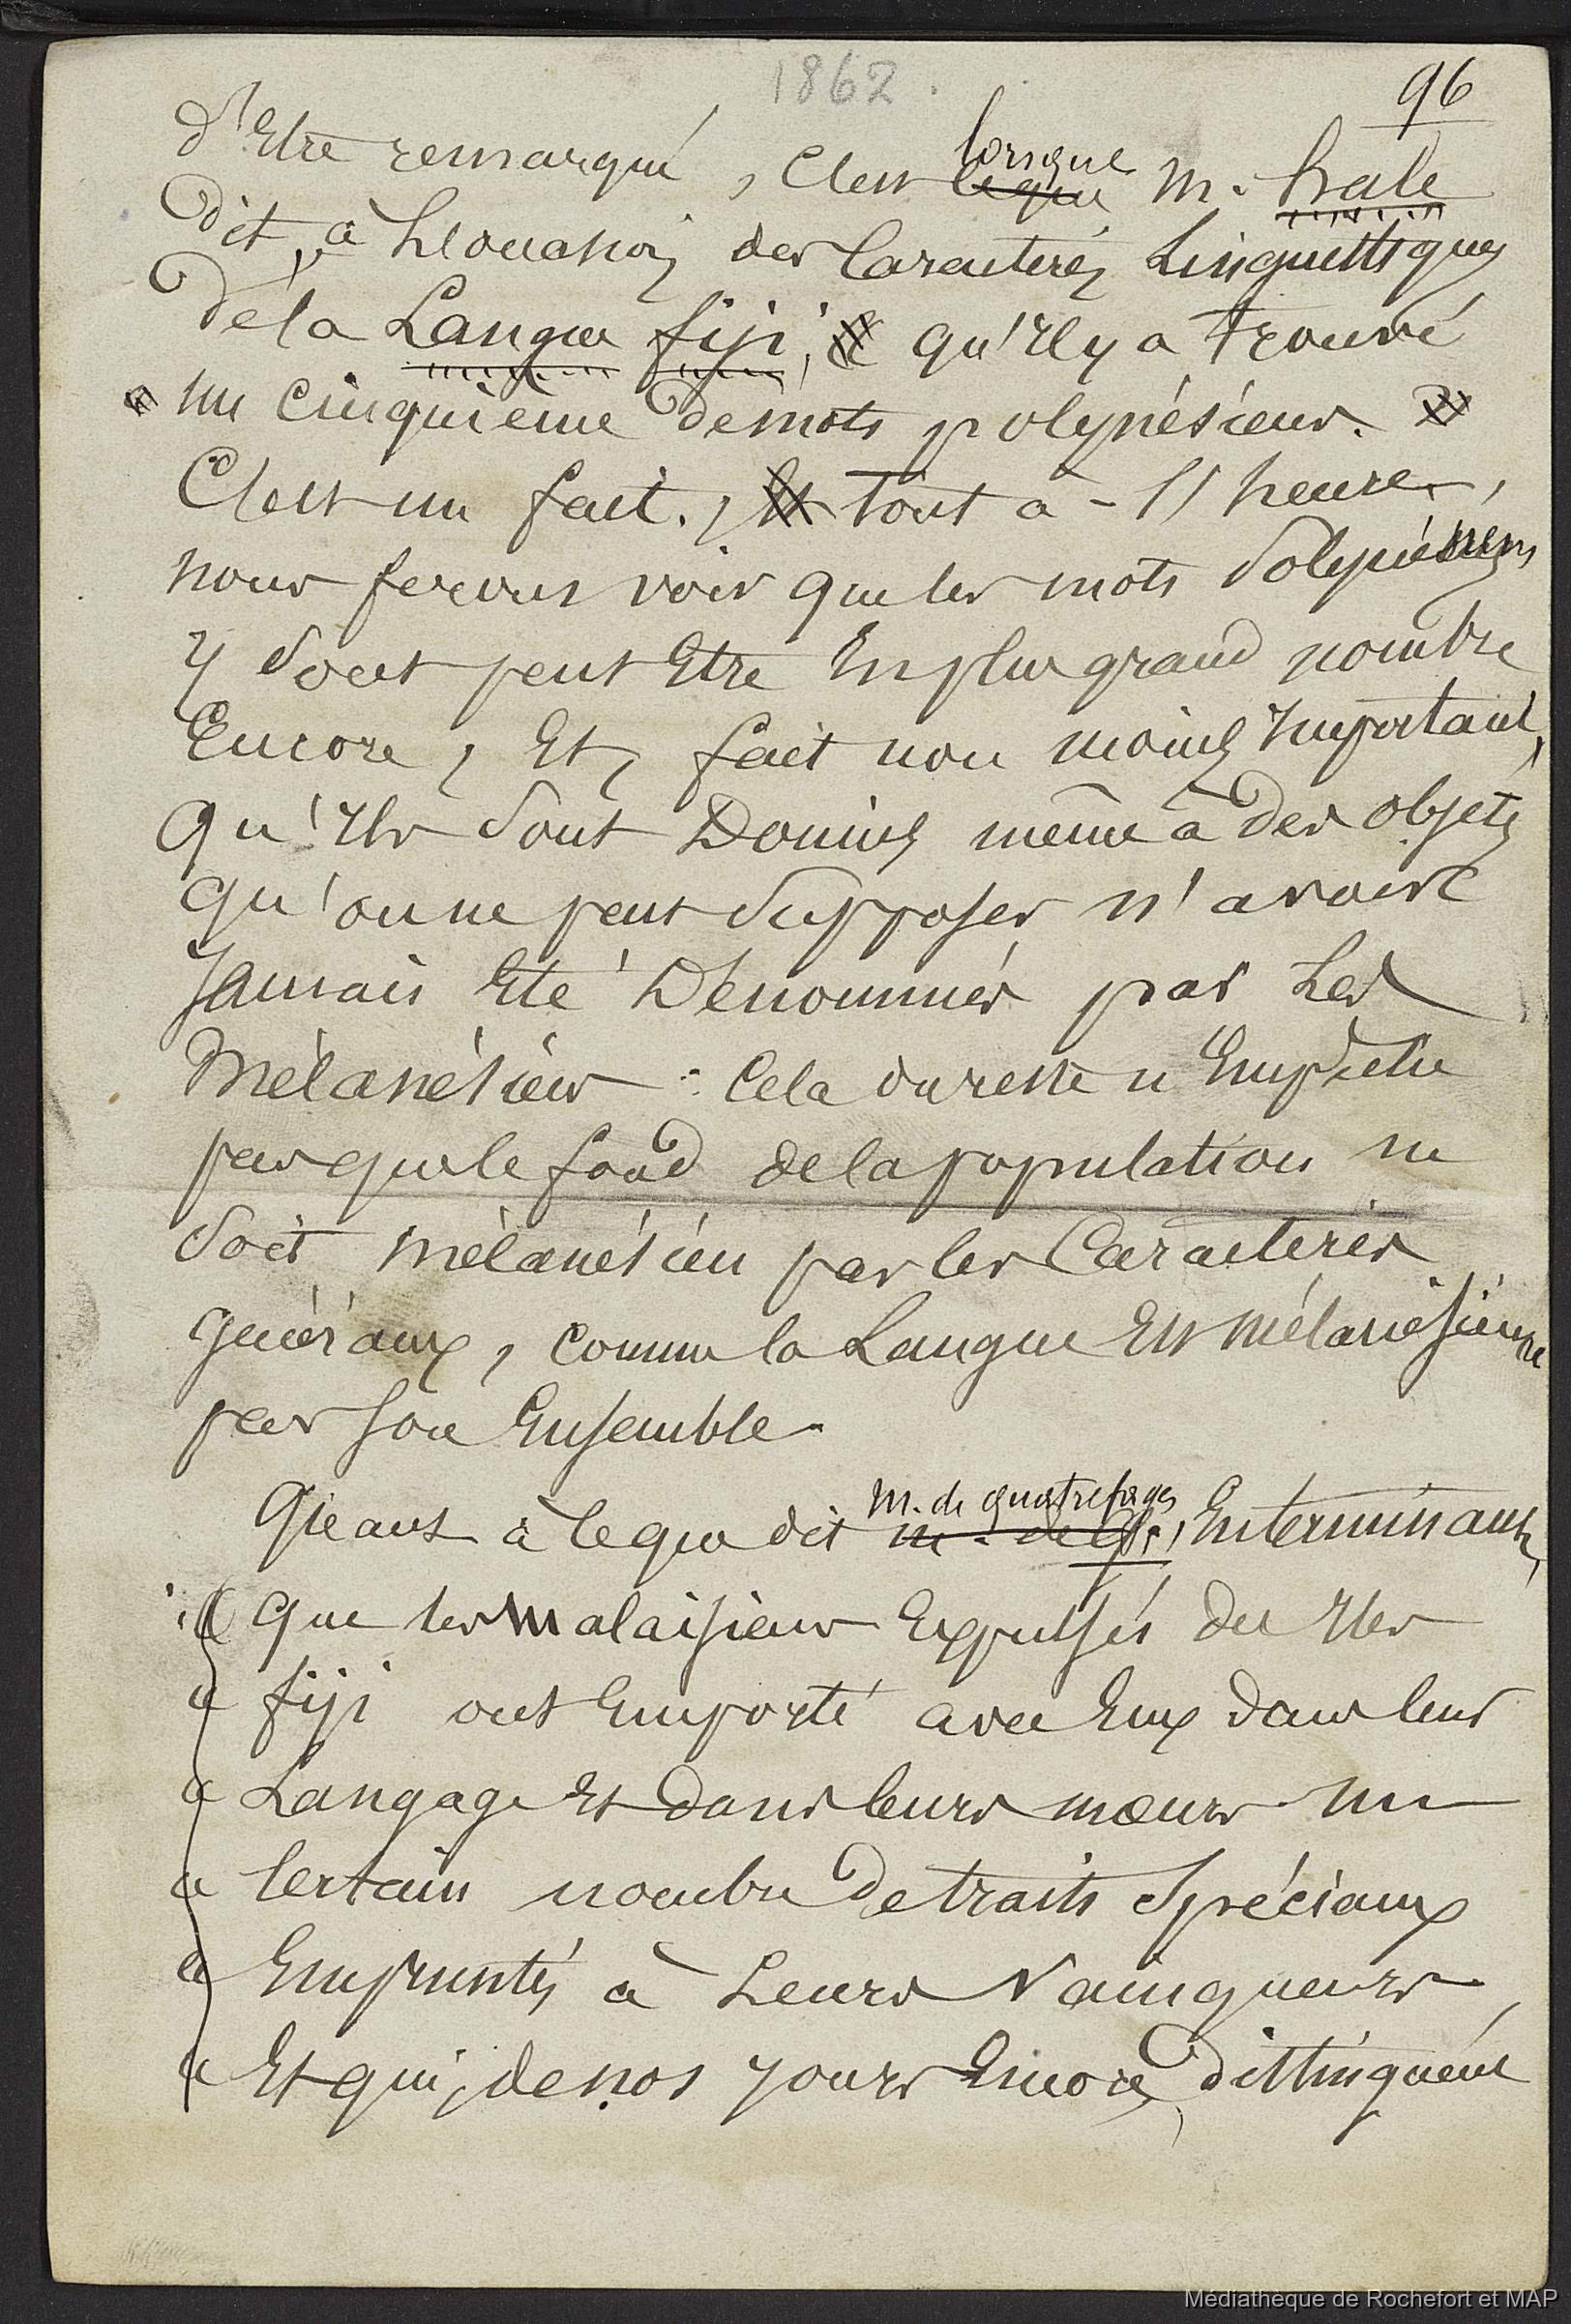 1862.
96
d'Etre remarqué, C'est lorsque M. hale
dit, à l'occasion des Caractères Linguistiques
de la Langue fiji, qu'il y a trouvé
un cinquième de mots polynésiens.
C'est un fait. tout à-l'heure,
nous ferons voir que les mots Polynésiens
y sont peut Etre En plus grand nombre
Encore, Et, fait non moins Important,
qu'Ils sont Donnés même à des objets
qu'on ne peut supposer n'avoir
Jamais Eté Dénommés par Les
Mélanésiens : Cela du reste n'Empêche
pas que le fond de la population ne
soit mélanésien par les Caractères
généraux, comme la Langue Est mélanésienne
par son Ensemble.
Quant à ce que dit M. de quatrefages, En terminant,
« que les Malaisiens Expulsés des Iles
« fiji ont Emporté avec Eux dans leur
« Langage Et dans leurs mœurs un
« Certain nombre de traits spéciaux
« Empruntés à Leurs Vainqueurs,
« Et qui, de nos jours Encore, distinguent
Médiathèque de Rochefort et MAP